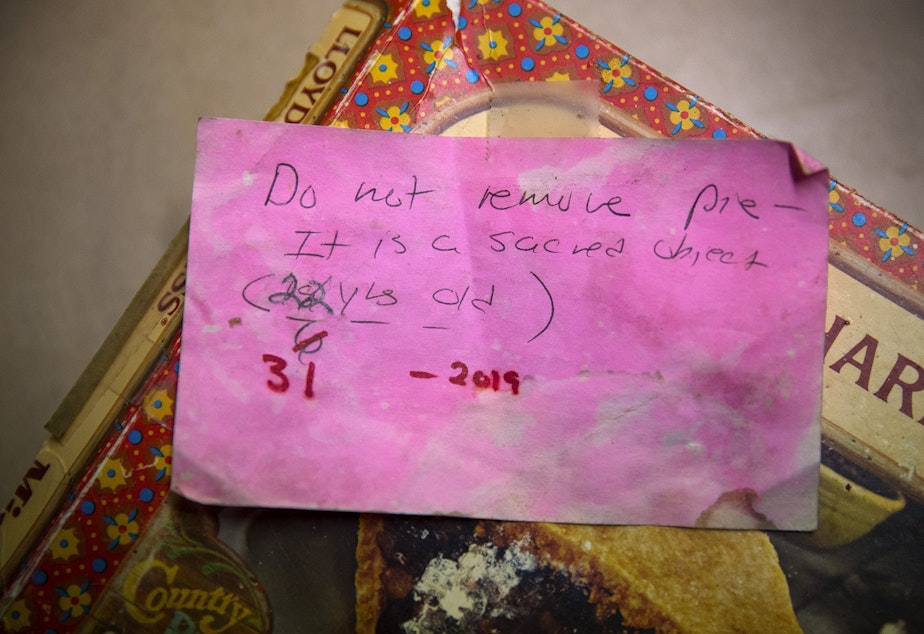 LLOYD
Do not remove pie -
It is a sacred object
(22 yrs old)
6
31 - 2019
HAR
Country